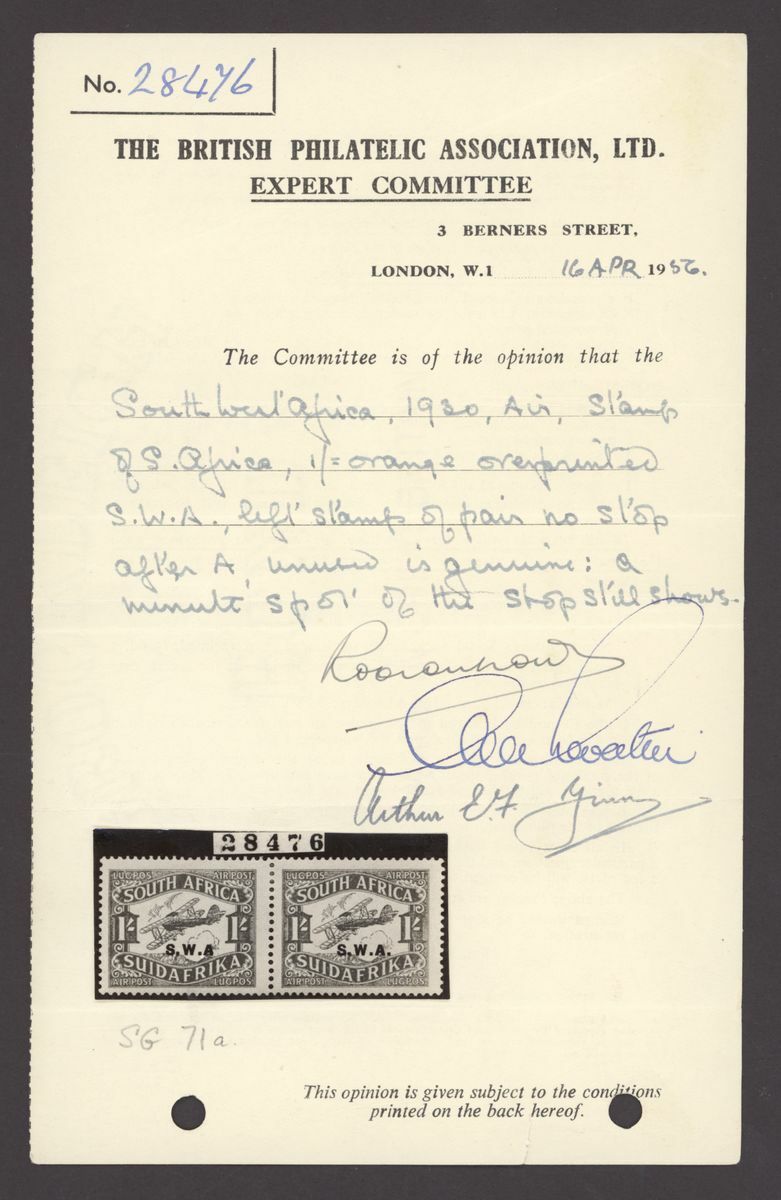 No. 28476
THE BRITISH PHILATELIC ASSOCIATION, LTD.
EXPERT COMMITTEE
3 BERNERS STREET,
LONDON, W.1 16 APR 1956.
The Committee is of the opinion that the
South West Africa, 1930, Air, Stamp
of S. Africa, 1/= orange overprinted
S.W.A., left stamp of pair no stop
after A, unused is genuine: a
minute spot of the stop still shows.
Arthur E.F.
28476
LUGPOS AIR POST LUGPOS AIR POST
SOUTH AFRICA SOUTH AFRICA
1/- 1/- 1/- 1/-
S.W.A S.W.A.
SUIDAFRIKA SUIDAFRIKA
AIR POST LUGPOS AIR POST LUGPOS
SG 71a.
This opinion is given subject to the conditions
printed on the back hereof.